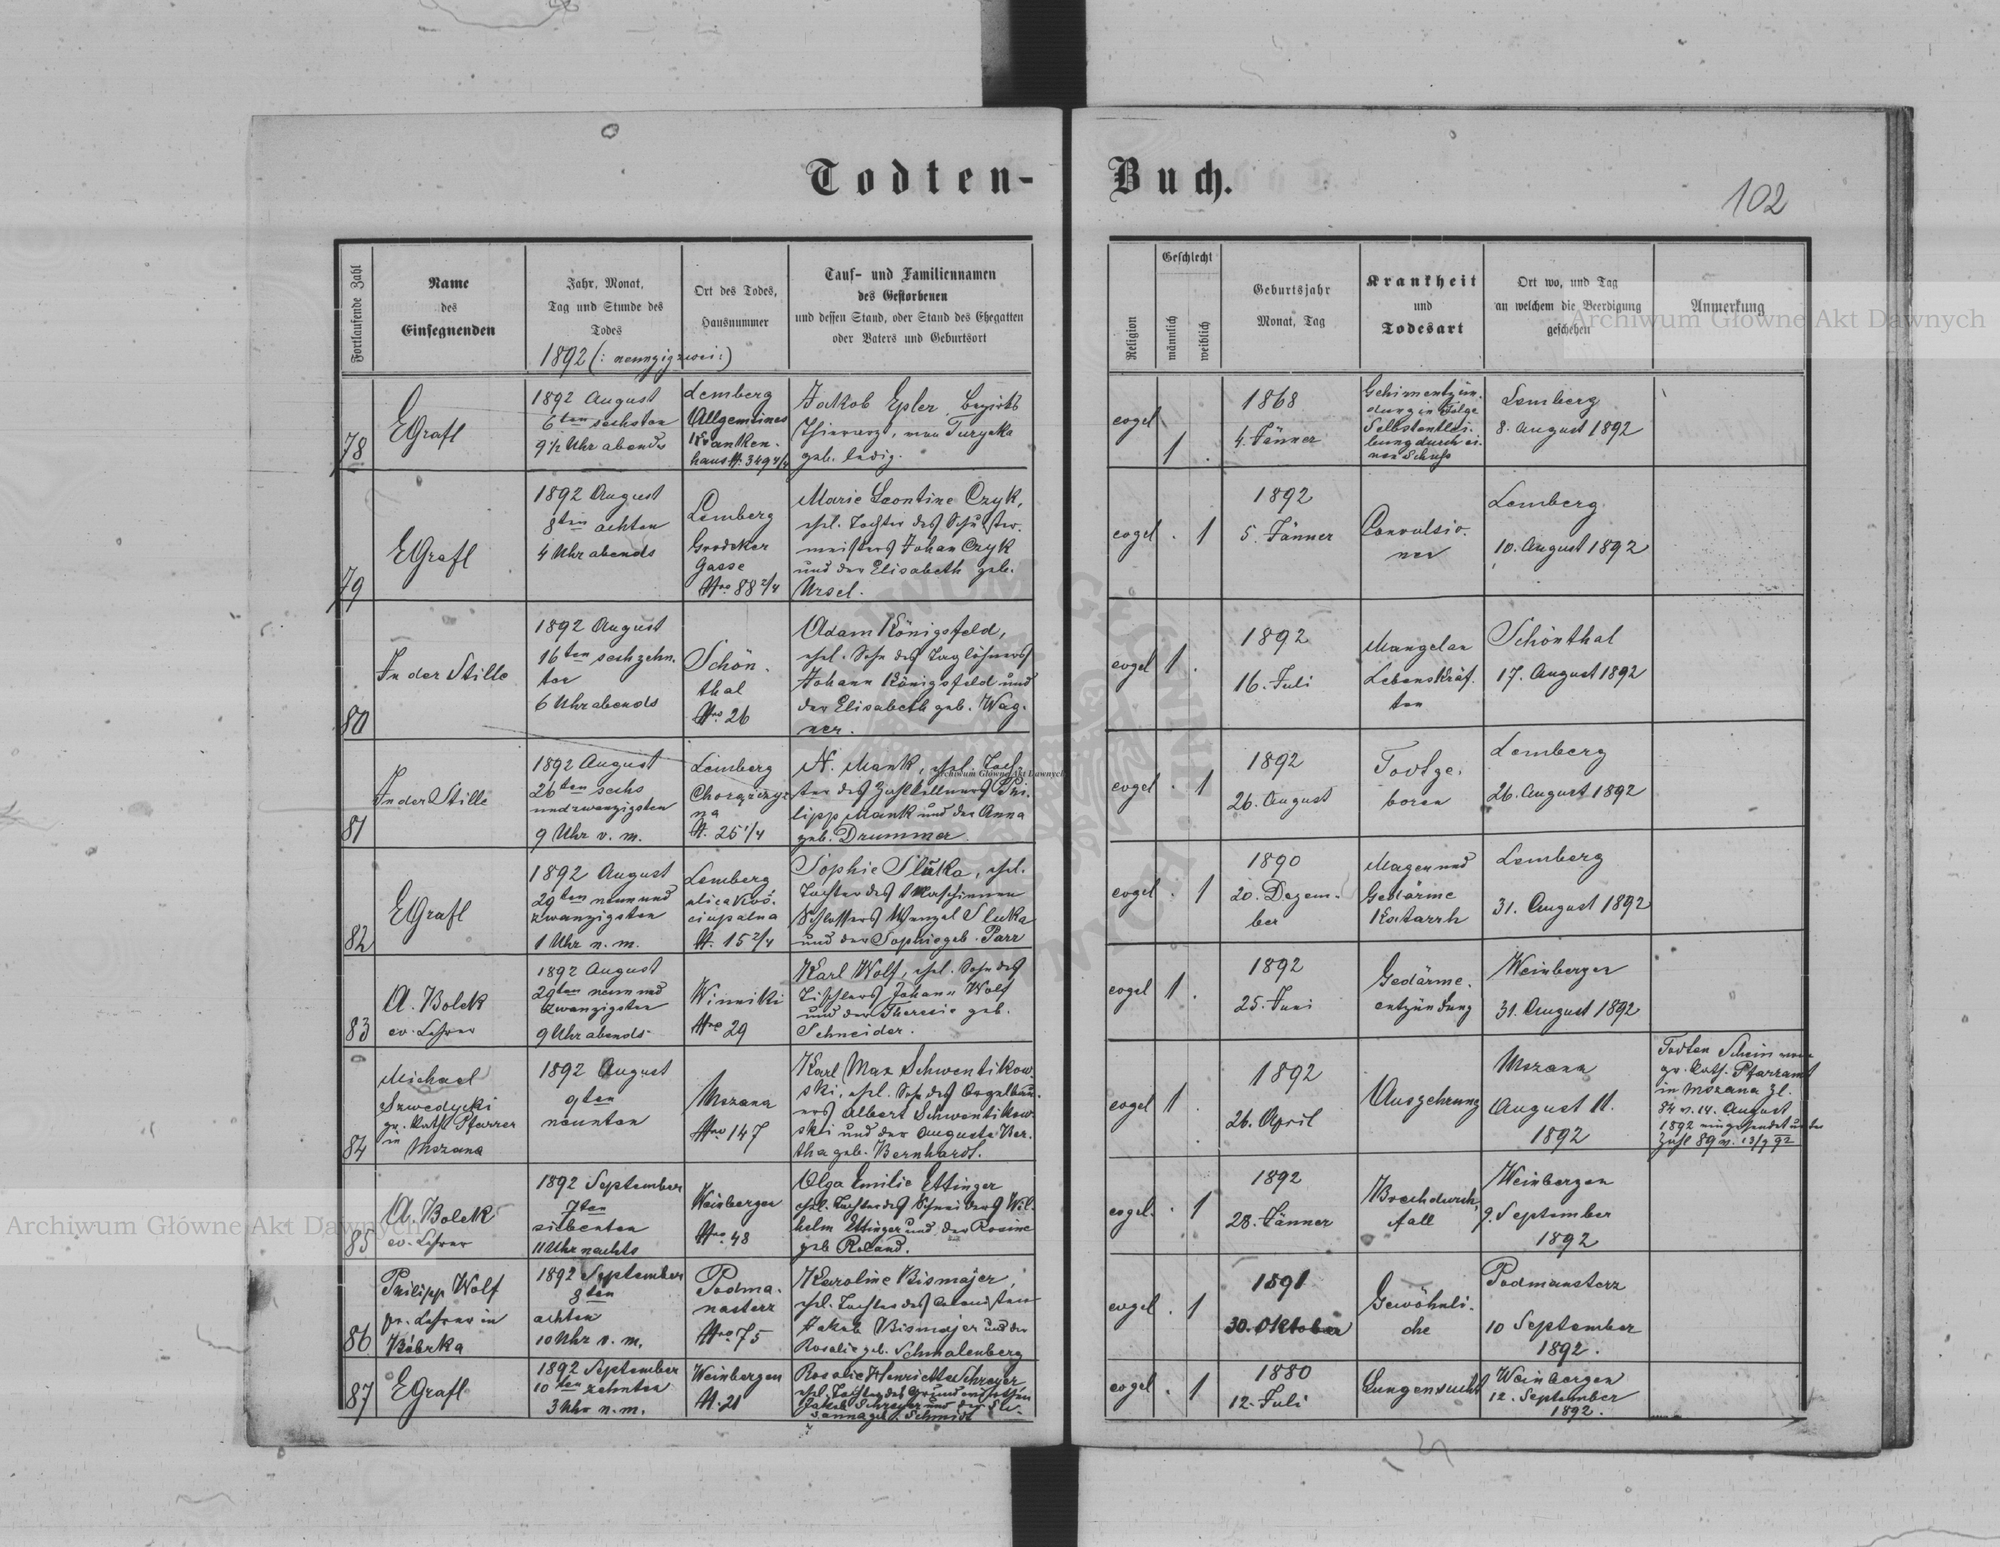 Todten-Buch.
102
Fortlaufende Zahl
Name
des
Einsegnenden
Jahr, Monat,
Tag und Stunde des
Todes
1892 (: neunzigzwei :)
Ort des Todes,
Hausnummer
Tauf- und Familiennamen
des Gestorbenen
und dessen Stand, oder Stand des Ehegatten
oder Vaters und Geburtsort
Religion
Geschlecht
männlich
weiblich
Geburtsjahr
Monat, Tag
Krankheit
und
Todesart
Ort wo, und Tag
an welchem die Beerdigung
geschehen
Anmerkung
78
EGrafl
1892 August
6ten sechsten
9½ Uhr abends
Lemberg
Allgemeines
Kranken-
haus N. 349 4/4
Jakob Epler, Bezirks
Thierarzt, von
geb. ledig.
evgel
1 .
1868
4. Jänner
Gehirnentzün-
dung in Folge
Selbstentlei-
bung durch ei-
nen Schuss
Lemberg
8. August 1892
79
EGrafl
1892 August
8ten achten
4 Uhr abends
Lemberg
Grodeker
Gasse
Nro 88 2/4
Marie Leontine Czyk,
ehel. Tochter des Schuster-
meisters Johan Czyk
und der Elisabeth geb.
Ursel.
evgel
. 1
1892
5. Jänner
Convulsio-
nen
Lemberg
10. August 1892
80
In der Stille
1892 August
16ten sechzehn-
ten
6 Uhr abends
Schön-
thal
Nro 26
Adam Königsfeld,
ehel. Sohn des Taglöhners
Johann Königsfeld und
der Elisabeth geb. Wag-
ner.
evgel
1 .
1892
16. Juli
Mangel an
Lebenskräf-
ten
Schönthal
17. August 1892
81
In der Stille
1892 August
26ten sechs
undzwanzigsten
9 Uhr v. m.
Lemberg
Chorązczyz
na
N. 25 1/4
N. Mank, ehel. Toch-
ter des Zahlkellners Phi-
lipp Mank und der Anna
geb. Drummer.
evgel
. 1
1892
26. August
Todtge-
boren
Lemberg
26. August 1892
82
EGrafl
1892 August
29ten neun und
zwanzigsten
1 Uhr n. m.
Lemberg
ulica Koś-
ciupalna
N. 15 2/4
Sophie Sluka, ehel.
Tochter des Maschinen
Schlossers Wenzel Sluka
und der Sophie geb. Parr
evgel
. 1
1890
20. Dezem-
ber
Magen und
Gedärme
Katarrh
Lemberg
31. August 1892
83
A. Bolek
ev. Lehrer
1892 August
29ten neun und
zwanzigsten
9 Uhr abends
Winniki
Nro 29
Karl Wolf, ehel. Sohn des
Tischlers Johann Wolf
und der Theresie geb.
Schneider.
evgel
1 .
1892
25. Juni
Gedärme-
entzündung
Weinbergen
31. August 1892
84
Michael
Szwedycki
gr. kath. Pfarrer
in
Mszana
1892 August
9ten
neunten
Mszana
Nro 147
Karl Max Schwentikow-
ski, ehel. Sohn des Orgelbau-
ers Albert Schwentikow-
ski und der Auguste Ber-
tha geb. Bernhardt.
evgel
1 .
1892
26. April
Auszehrung
Mszana
August 11.
1892
Todten Schein vom
gr. kath. Pfarramt
in Mszana Zl.
84 v. 14. August
1892 eingesendet unter
Zahl 89 v. 13/9 92
85
A. Bolek
ev. Lehrer
1892 September
7ten
siebenten
11 Uhr nachts
Weinbergen
Nro 48
Olga Emilie Ettinger
ehel. Tochter des Schneiders Wil-
helm Ettinger und der Rosine
geb. Roland.
evgel.
. 1
1892
28. Jänner
Brechdurch-
fall
Weinbergen
9. September
1892
86
Philipp Wolf
pr. Lehrer in
Bóbrka
1892 September
8ten
achten
10 Uhr v. m.
Podma-
nasterz
Nro 75
Karoline Bismajer,
ehel. Tochter des Colonisten
Jakob Bismajer und der
Rosalie geb. Schmalenberg
evgel
. 1
1891
30. Oktober
Gewöhnli-
che
Podmansterz
10 September
1892.
87
EGrafl
1892 September
10ten zehnten
3 Uhr n. m.
Weinbergen
N. 21
Rosalie Henriette Schreyer
ehel. Tochter des Grundwirthen
Jakob Schreyer und der Su-
sanna geb. Schmidt
evgel
. 1
1880
12. Juli
Lungensucht
Weinbergen
12. September
1892.
Archiwum Główne Akt Dawnych
Archiwum Główne Akt Dawnych
Archiwum Główne Akt Dawnych